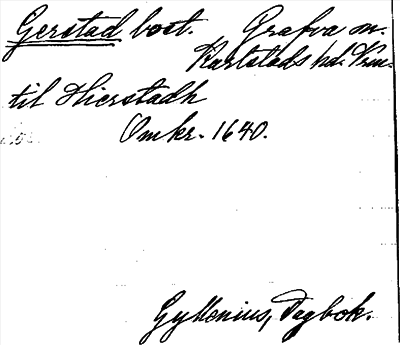 Gerstad bost. Grafva sn.
Karlstads hd. Vrm.
til Hierstadh
Omkr. 1640.
Gyllenius, Dagbok.